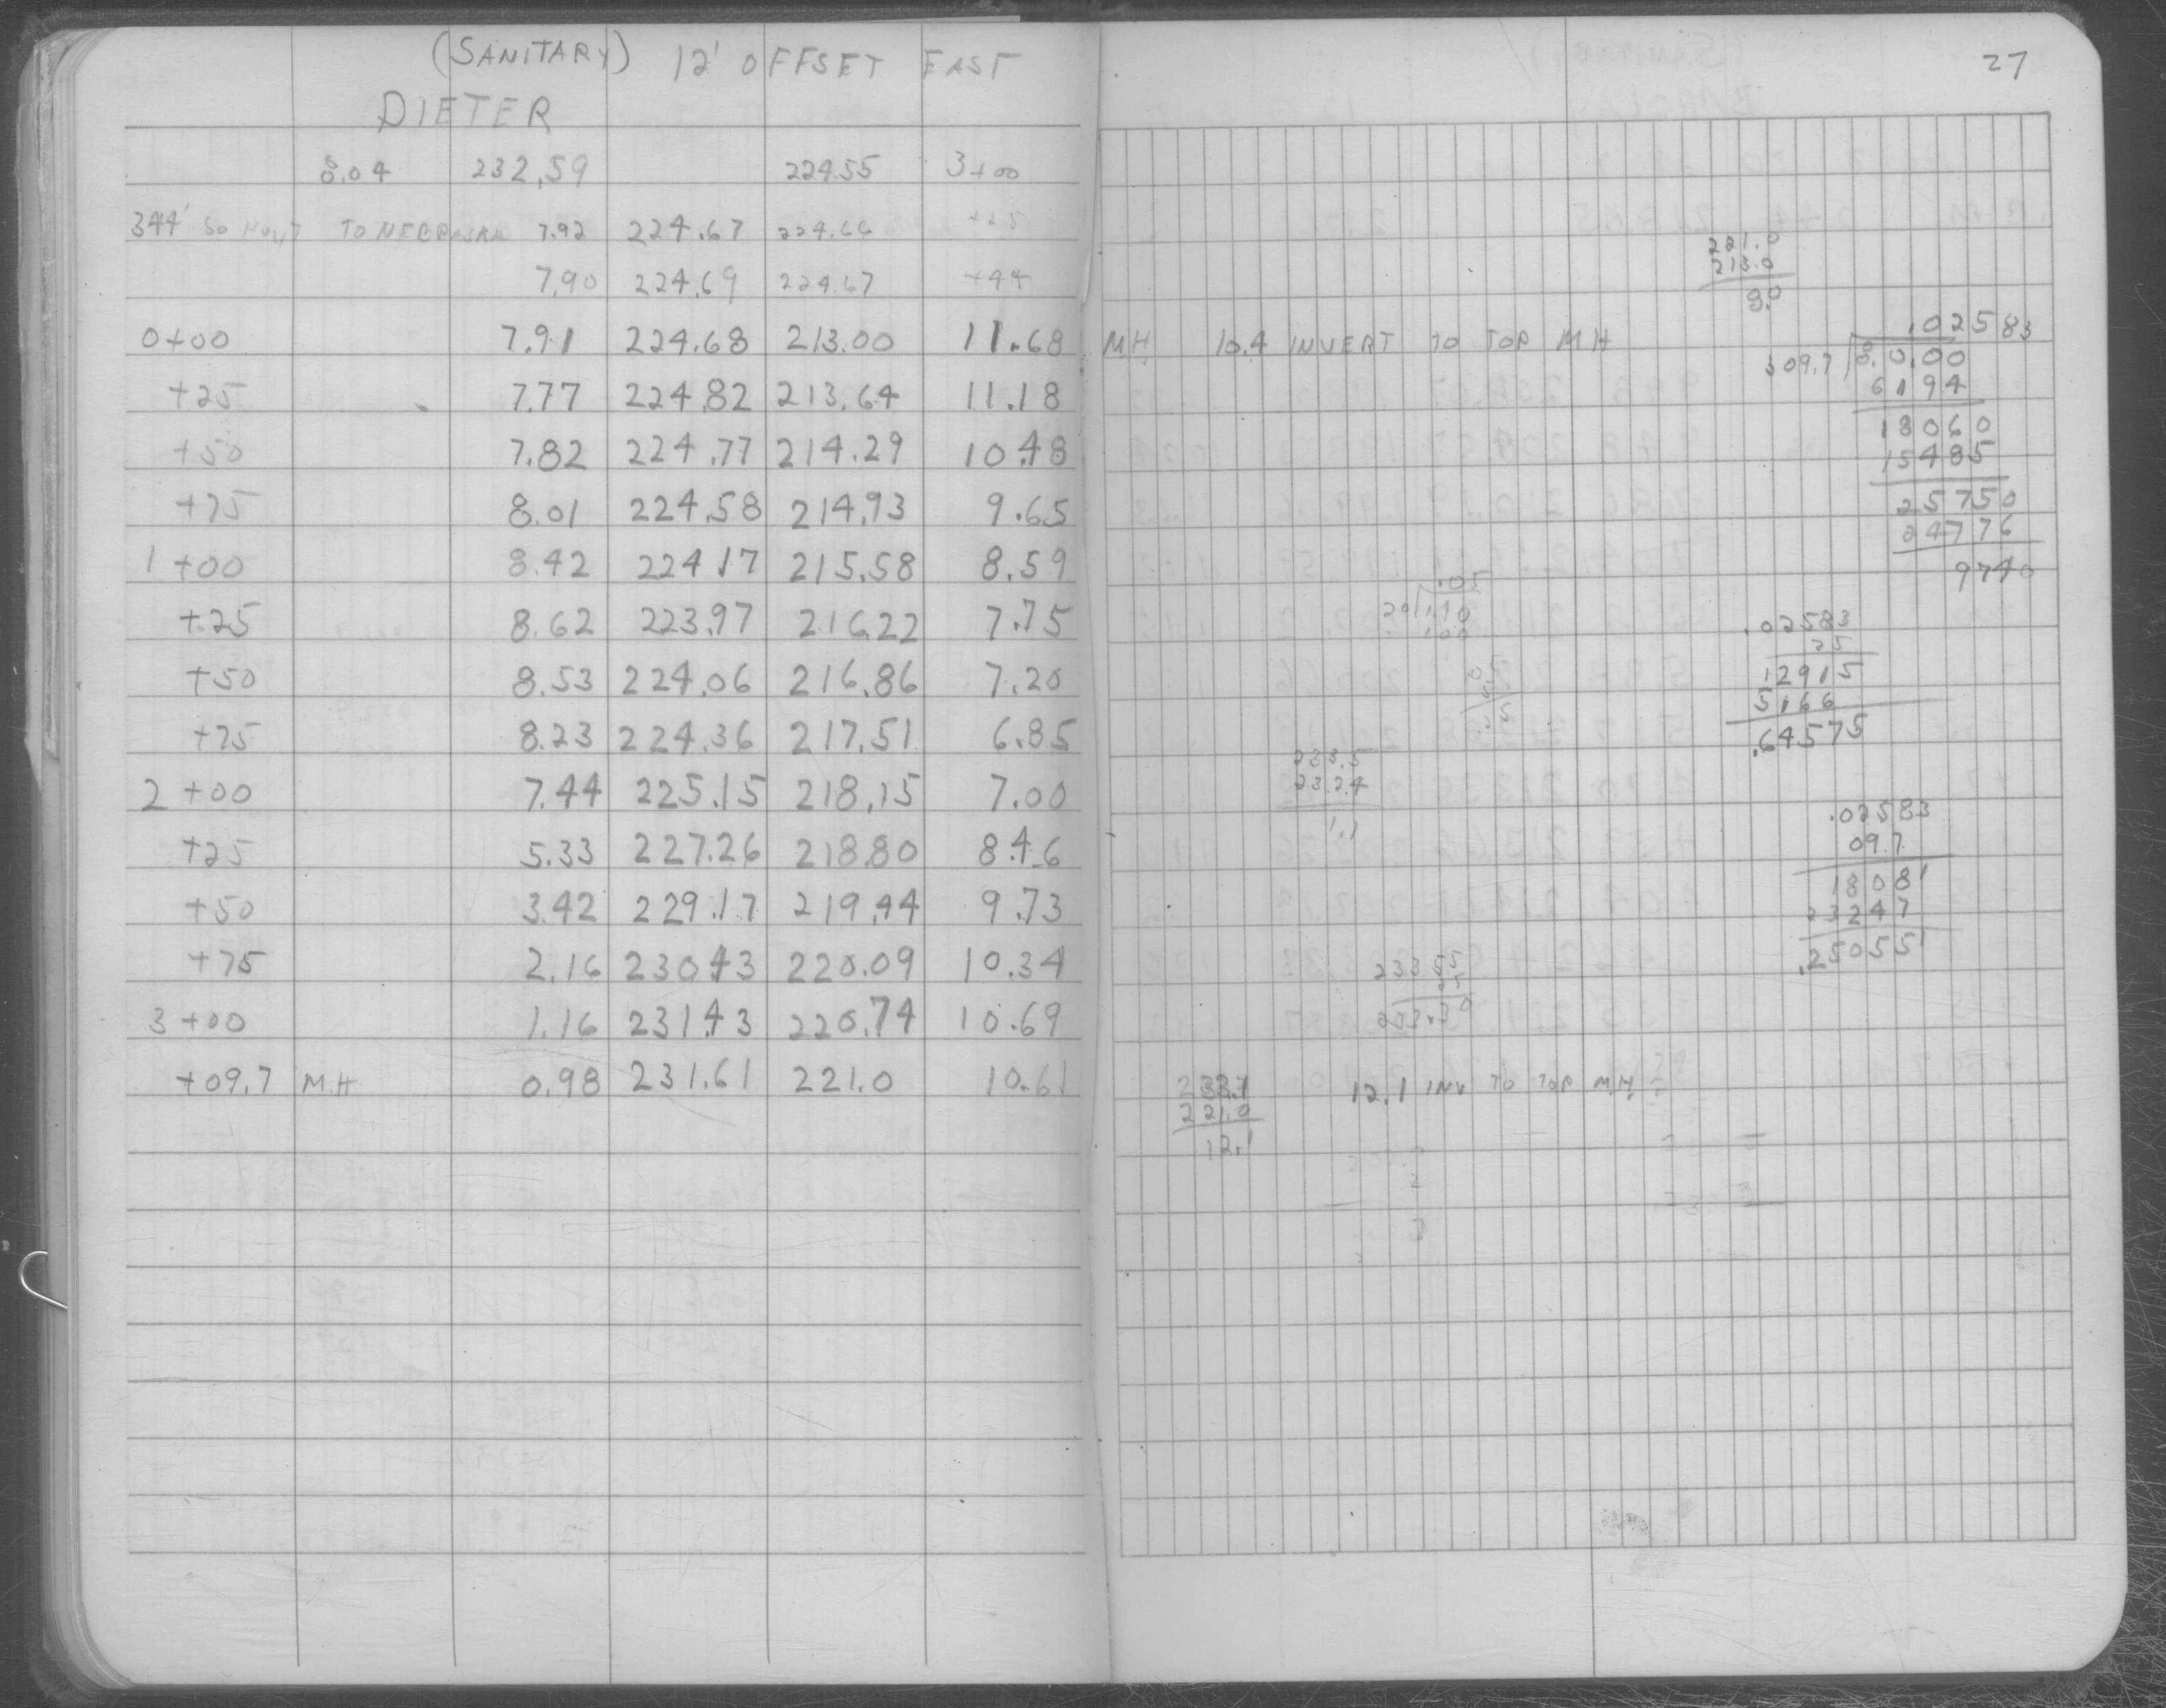 (SANITARY) 12' OFFSET EAST
DIETER
8.04 232.59 224.55 3+00
344' So TO NEBRASKA 7.92 224.67 224.66 +25
7.90 224.69 224.67 +44
0+00 7.91 224.68 213.00 11.68
+25 7.77 224.82 213.64 11.18
+50 7.82 224.77 214.29 10.48
+75 8.01 224.58 214.93 9.65
1+00 8.42 224.17 215.58 8.59
+25 8.62 223.97 216.22 7.75
+50 8.53 224.06 216.86 7.20
+75 8.23 224.36 217.51 6.85
2+00 7.44 225.15 218.15 7.00
+25 5.33 227.26 218.80 8.46
+50 3.42 229.17 219.44 9.73
+75 2.16 230.43 220.09 10.34
3+00 1.16 231.43 220.74 10.69
+09.7 M.H 0.98 231.61 221.0 10.61
27
221.0
213.0
8.0
MH 10.4 INVERT TO TOP MH
.02583
309.7 8.0.00
6194
18060
15485
25750
24776
9740
.05
20 1.10
100
.02583
25
12915
5166
.64575
233.5
232.4
1.1
.02583
09.7
18081
23247
.250551
221.0
12.1
12.1 INV TO TOP M.H.